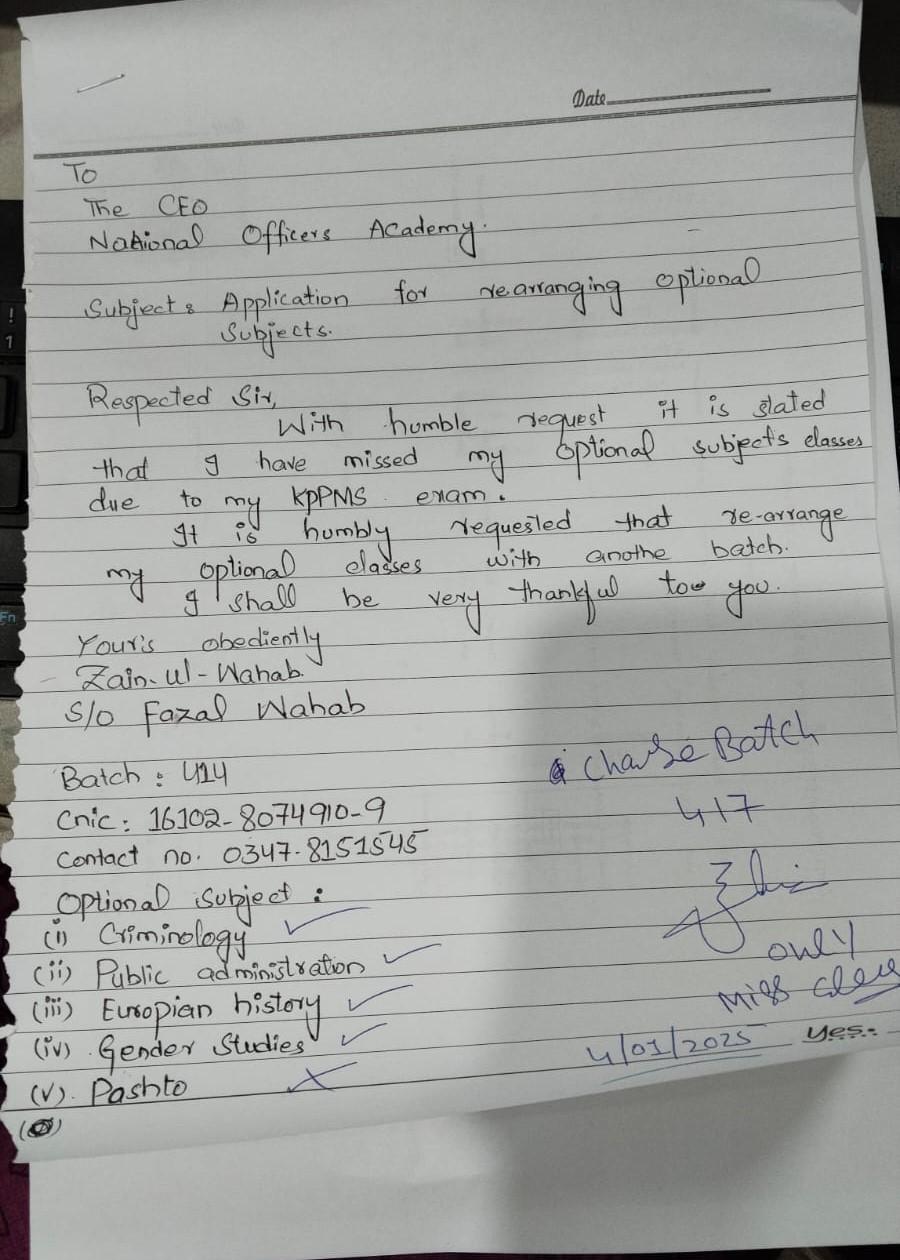 Date
To
The CEO
National Officers Academy.
Subject: Application for rearranging optional
Subjects.
Respected Sir,
With humble request it is stated
that I have missed my optional subject's classes
due to my KPPMS exam.
It is humbly requested that re-arrange
my optional classes with anothe batch.
I shall be very thankful to you.
Your's obediently
Zain-ul-Wahab.
S/o Fazal Wahab
Batch: 414
Cnic: 16102-8074910-9
Contact no. 0347-8151545
Optional Subject:
(i) Criminology
(ii) Public administration
(iii) Europian history
(iv) Gender Studies
(v). Pashto
Batch
417
only
Miss
4/01/2025 yes.